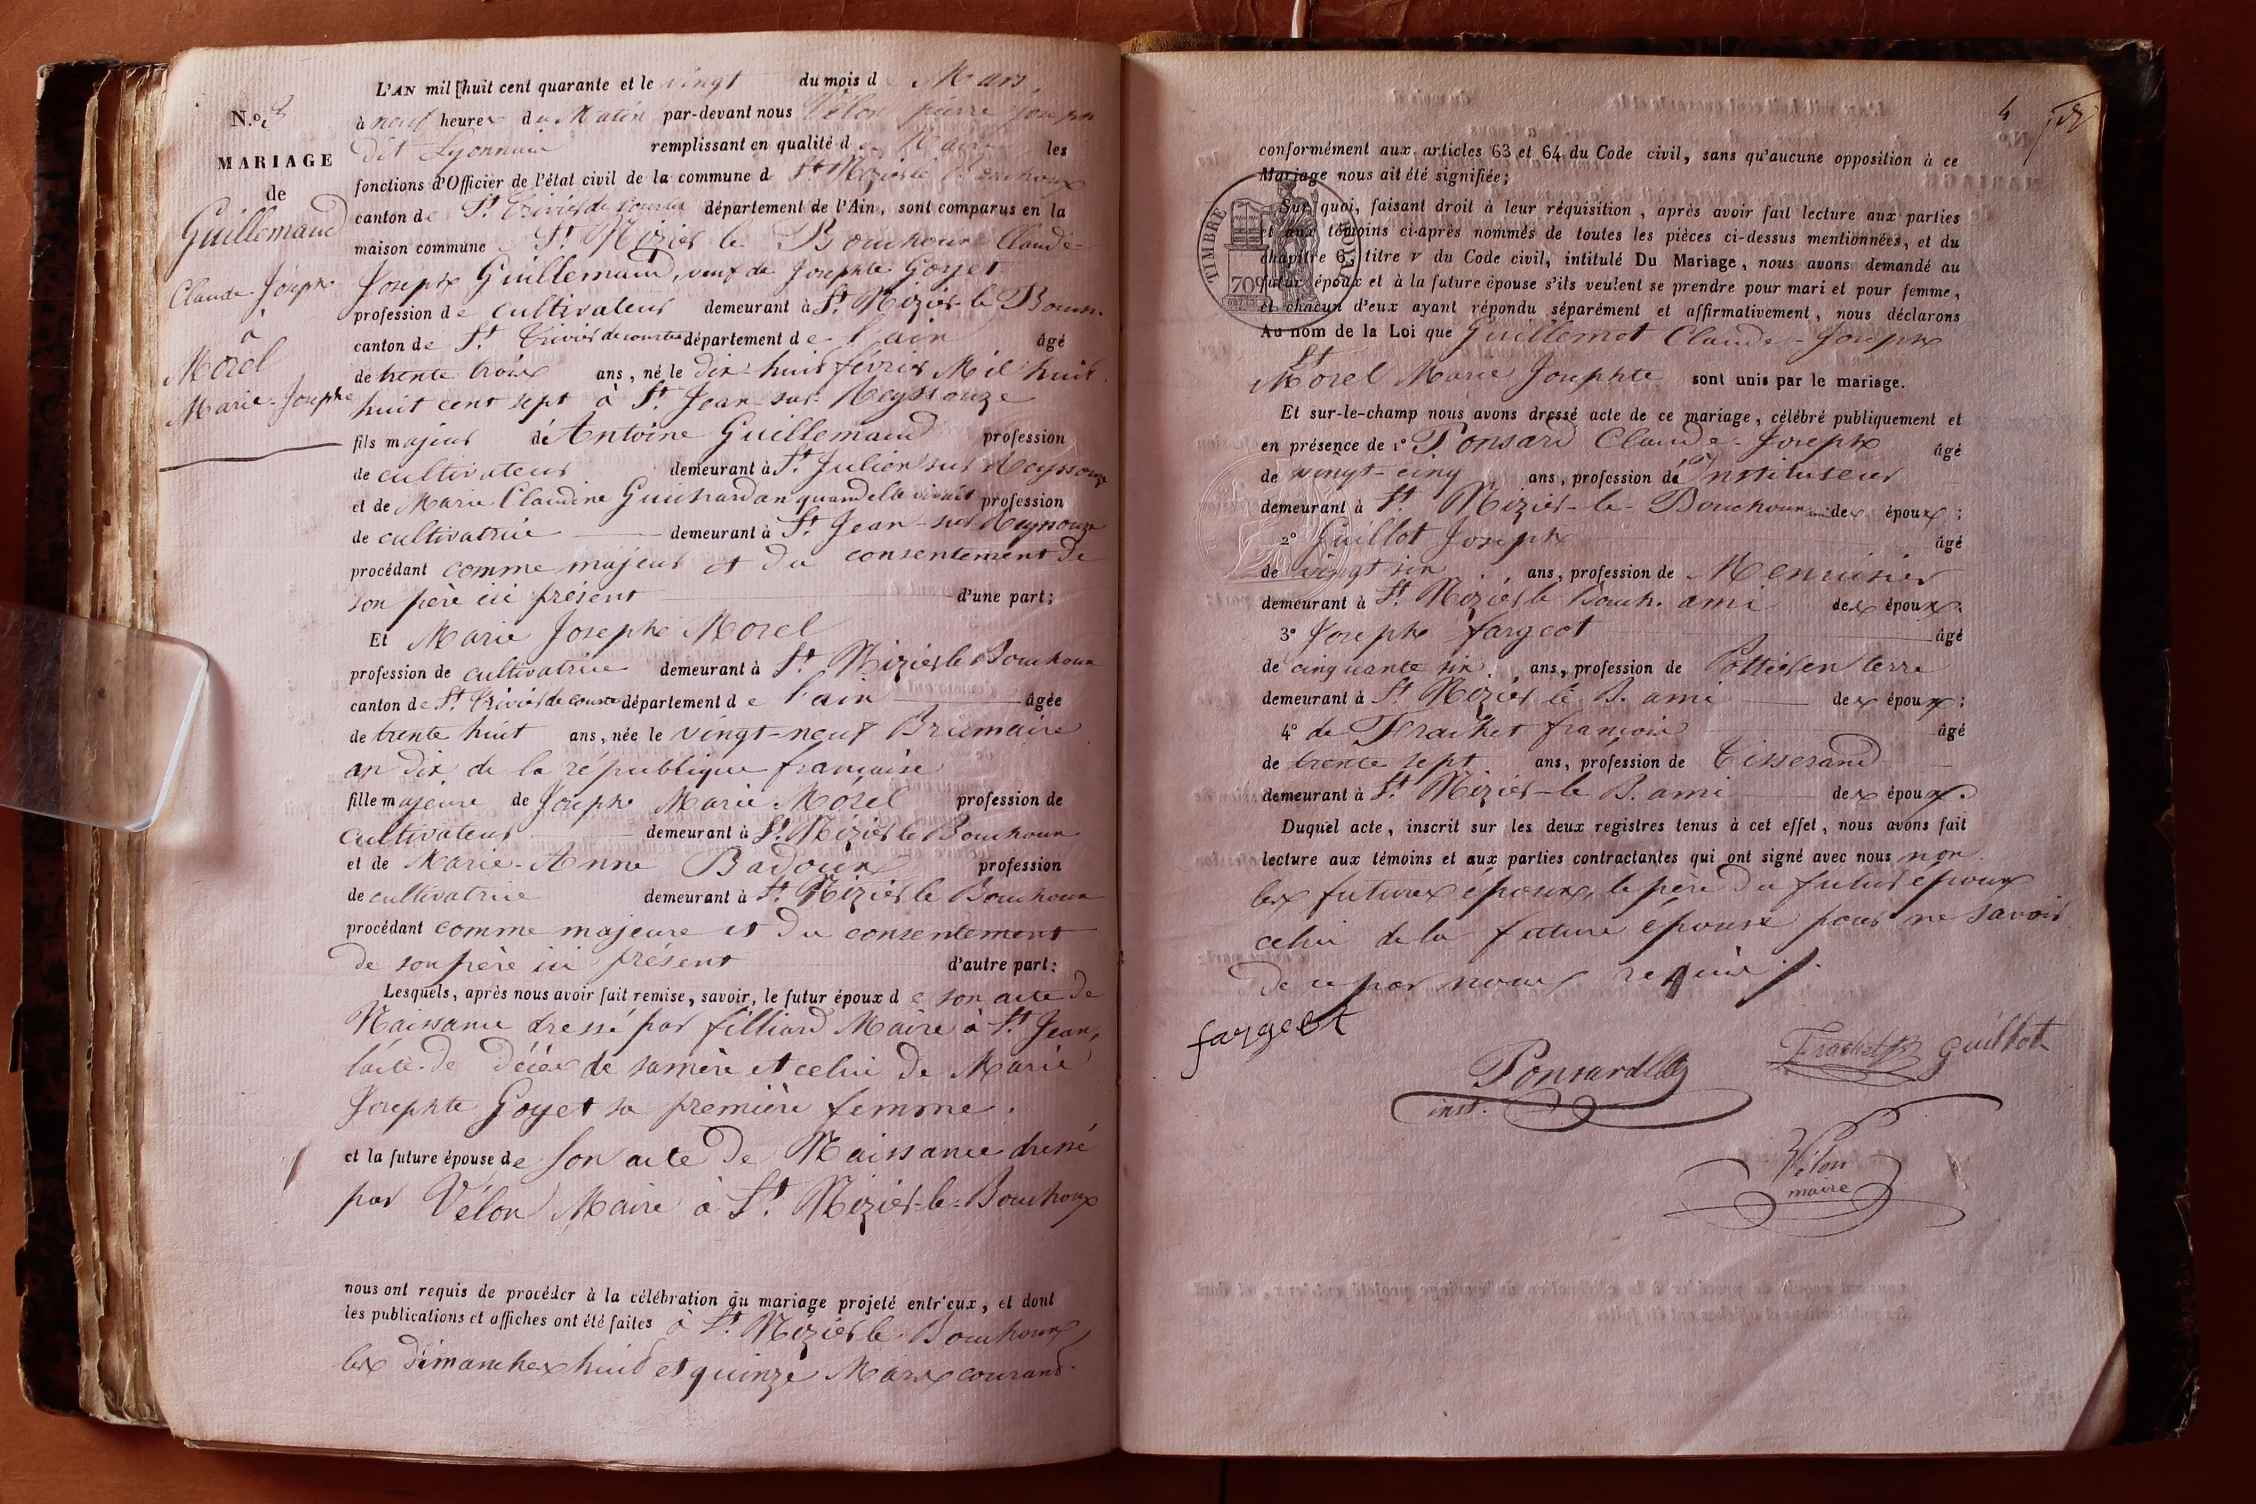 L'AN mil huit cent quarante et le vingt du mois de Mars,
N.º
à neuf heures du Matin par-devant nous Vélon pierre joseph
dit Lyonnais remplissant en qualité de Maire les
MARIAGE
fonctions d'Officier de l'état civil de la commune de St Nizier le Bouchoux
de
canton de St. Trivier de courtes département de l'Ain, sont comparus en la
Guillemaud
maison commune St. Nizier le Bouchoux Claude-
Claude-Joseph
Joseph Guillemaud, veuf de Josephte Goyet
profession de cultivateur demeurant à St. Nizier-le Bouch.
à
canton de St. Trivier de courtes département de l'ain âgé
Morel
de trente trois ans, né le dix-huit février Mil huit
Marie-Josephe
huit cent sept à St. Jean-sur-Reyssouze
fils majeur de Antoine Guillemaud profession
de cultivateur demeurant à St. Julien sur Reyssouze
et de Marie Claudine Guichardan quand elle vivait profession
de cultivatrice demeurant à St. Jean-sur Reyssouze
procédant comme majeur et du consentement de
son père ici présent d'une part;
Et Marie Josephe Morel
profession de cultivatrice demeurant à St. Nizier le Bouchoux
canton de St. Trivier de courtes département de l'ain âgée
de trente huit ans, née le vingt-neuf Brumaire
an dix de la république française
fille majeure de Joseph Marie Morel profession de
cultivateur demeurant à St. Nizier le Bouchoux
et de Marie-Anne Badoux profession
de cultivatrice demeurant à St. Nizier le Bouchoux
procédant comme majeure et du consentement
de son père ici présent d'autre part:
Lesquels, après nous avoir fait remise, savoir, le futur époux de son acte de
Naissance dressé par filliard Maire à St. Jean,
l'acte de décès de sa mère et celui de Marie
Josephte Goyet sa première femme.
et la future épouse de son acte de Naissance dressé
par Vélon Maire à St. Nizier-le-Bouchoux
nous ont requis de procéder à la célébration du mariage projeté entr'eux, et dont
les publications et affiches ont été faites à St. Nizier le Bouchoux,
les dimanches huit et quinze Mars courant.
4
conformément aux articles 63 et 64 du Code civil, sans qu'aucune opposition à ce
Mariage nous ait été signifiée;
TIMBRE ROYAL
70c
Sur quoi, faisant droit à leur réquisition, après avoir fait lecture aux parties
et aux témoins ci-après nommés de toutes les pièces ci-dessus mentionnées, et du
chapitre 6, titre v du Code civil, intitulé Du Mariage, nous avons demandé au
futur époux et à la future épouse s'ils veulent se prendre pour mari et pour femme,
et chacun d'eux ayant répondu séparément et affirmativement, nous déclarons
Au nom de la Loi que Guillemot Claude-Joseph
et
Morel Marie Josephte sont unis par le mariage.
Et sur-le-champ nous avons dressé acte de ce mariage, célébré publiquement et
en présence de 1º Ponsard Claude-Joseph âgé
de vingt-cinq ans, profession d' Instituteur
demeurant à St. Nizier-le-Bouchoux ami des époux;
2º Guillot Joseph âgé
de vingt six ans, profession de Menuisier
demeurant à St. Nizier le Bouch. ami des époux.
3º Joseph fargeot âgé
de cinquante six ans, profession de Pottier en terre
demeurant à St Nizier le B. ami des époux;
4º de Frachet françois âgé
de trente sept ans, profession de Tisserand
demeurant à St. Nizier-le B. ami des époux.
Duquel acte, inscrit sur les deux registres tenus à cet effet, nous avons fait
lecture aux témoins et aux parties contractantes qui ont signé avec nous non
les futurs époux, le père du futur époux
celui de la future épouse pour ne savoir
de ce par nous requis.
fargeot
Frachet guillot
Ponsard
inst.
Vélon
maire